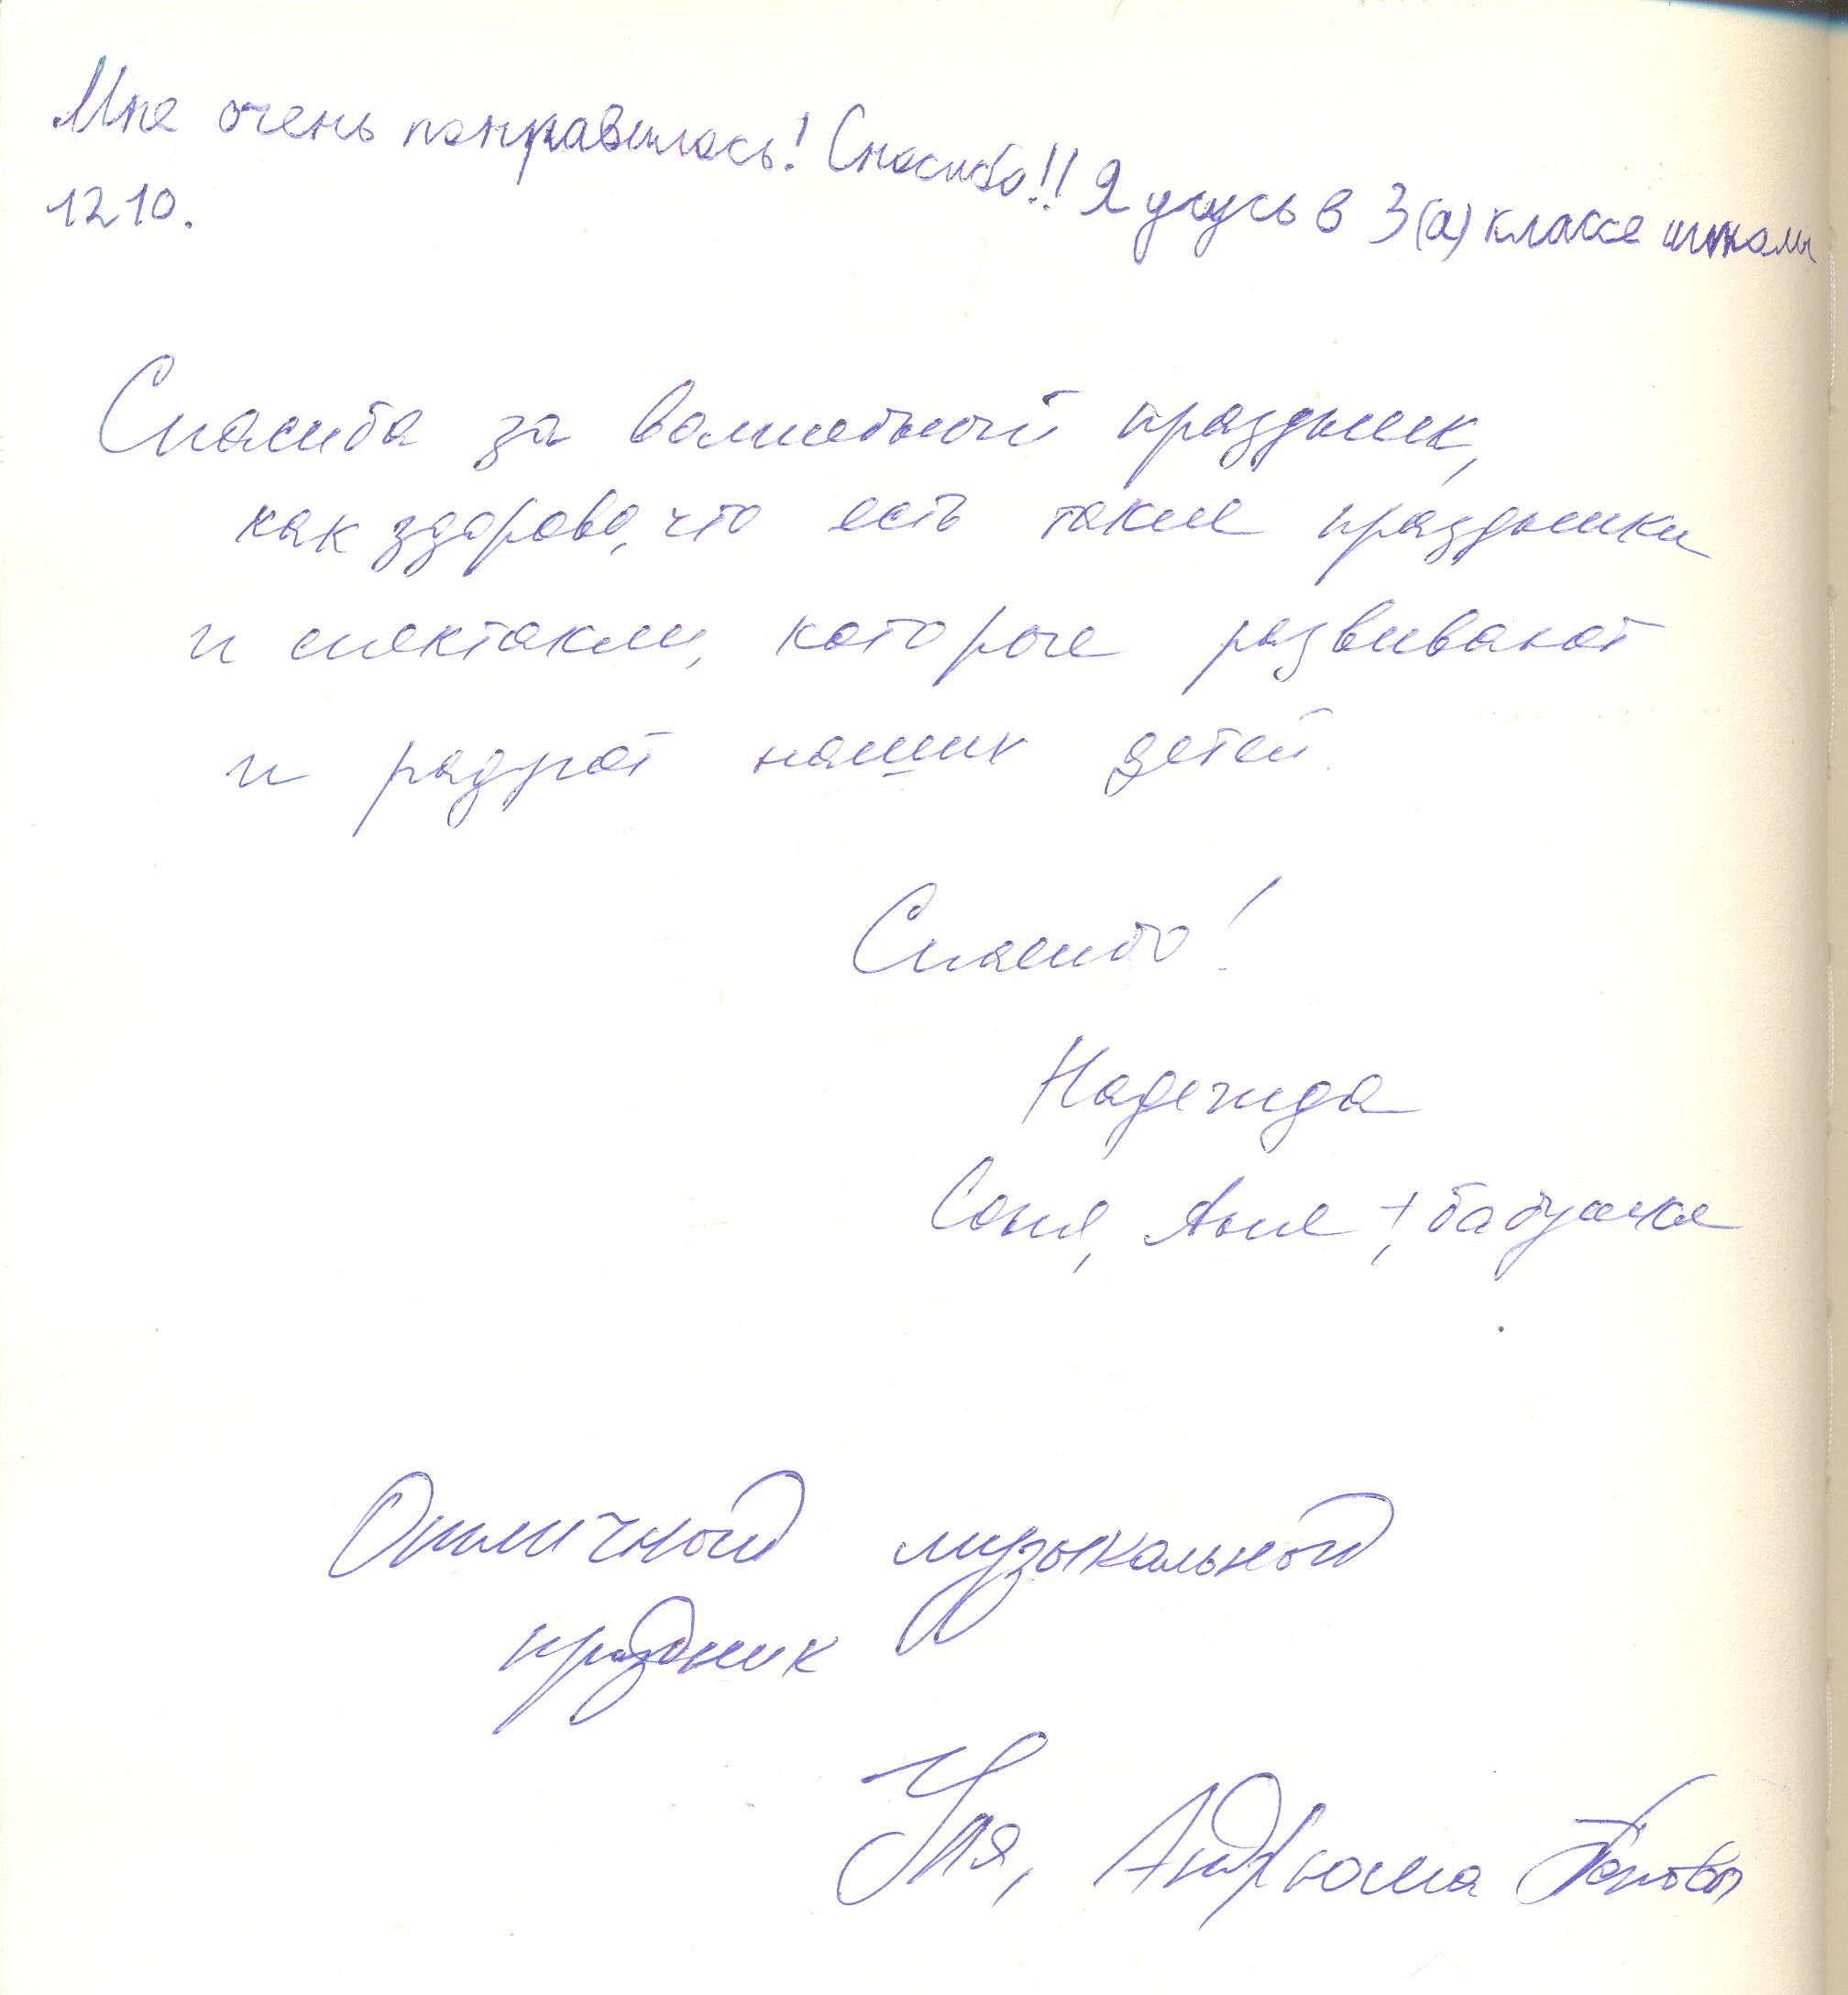 Мне очень понравилось! Спасибо!! Я учусь в 3(а) классе школы
1210.
Спасибо за волшебный праздник,
как здорово, что есть такие праздники
и спектакли, которые развивают
и радуют наших детей.
Спасибо!
Надежда
Соня, Аня + бабушка
Отличный музыкальный
праздник
Уля, Андрюша